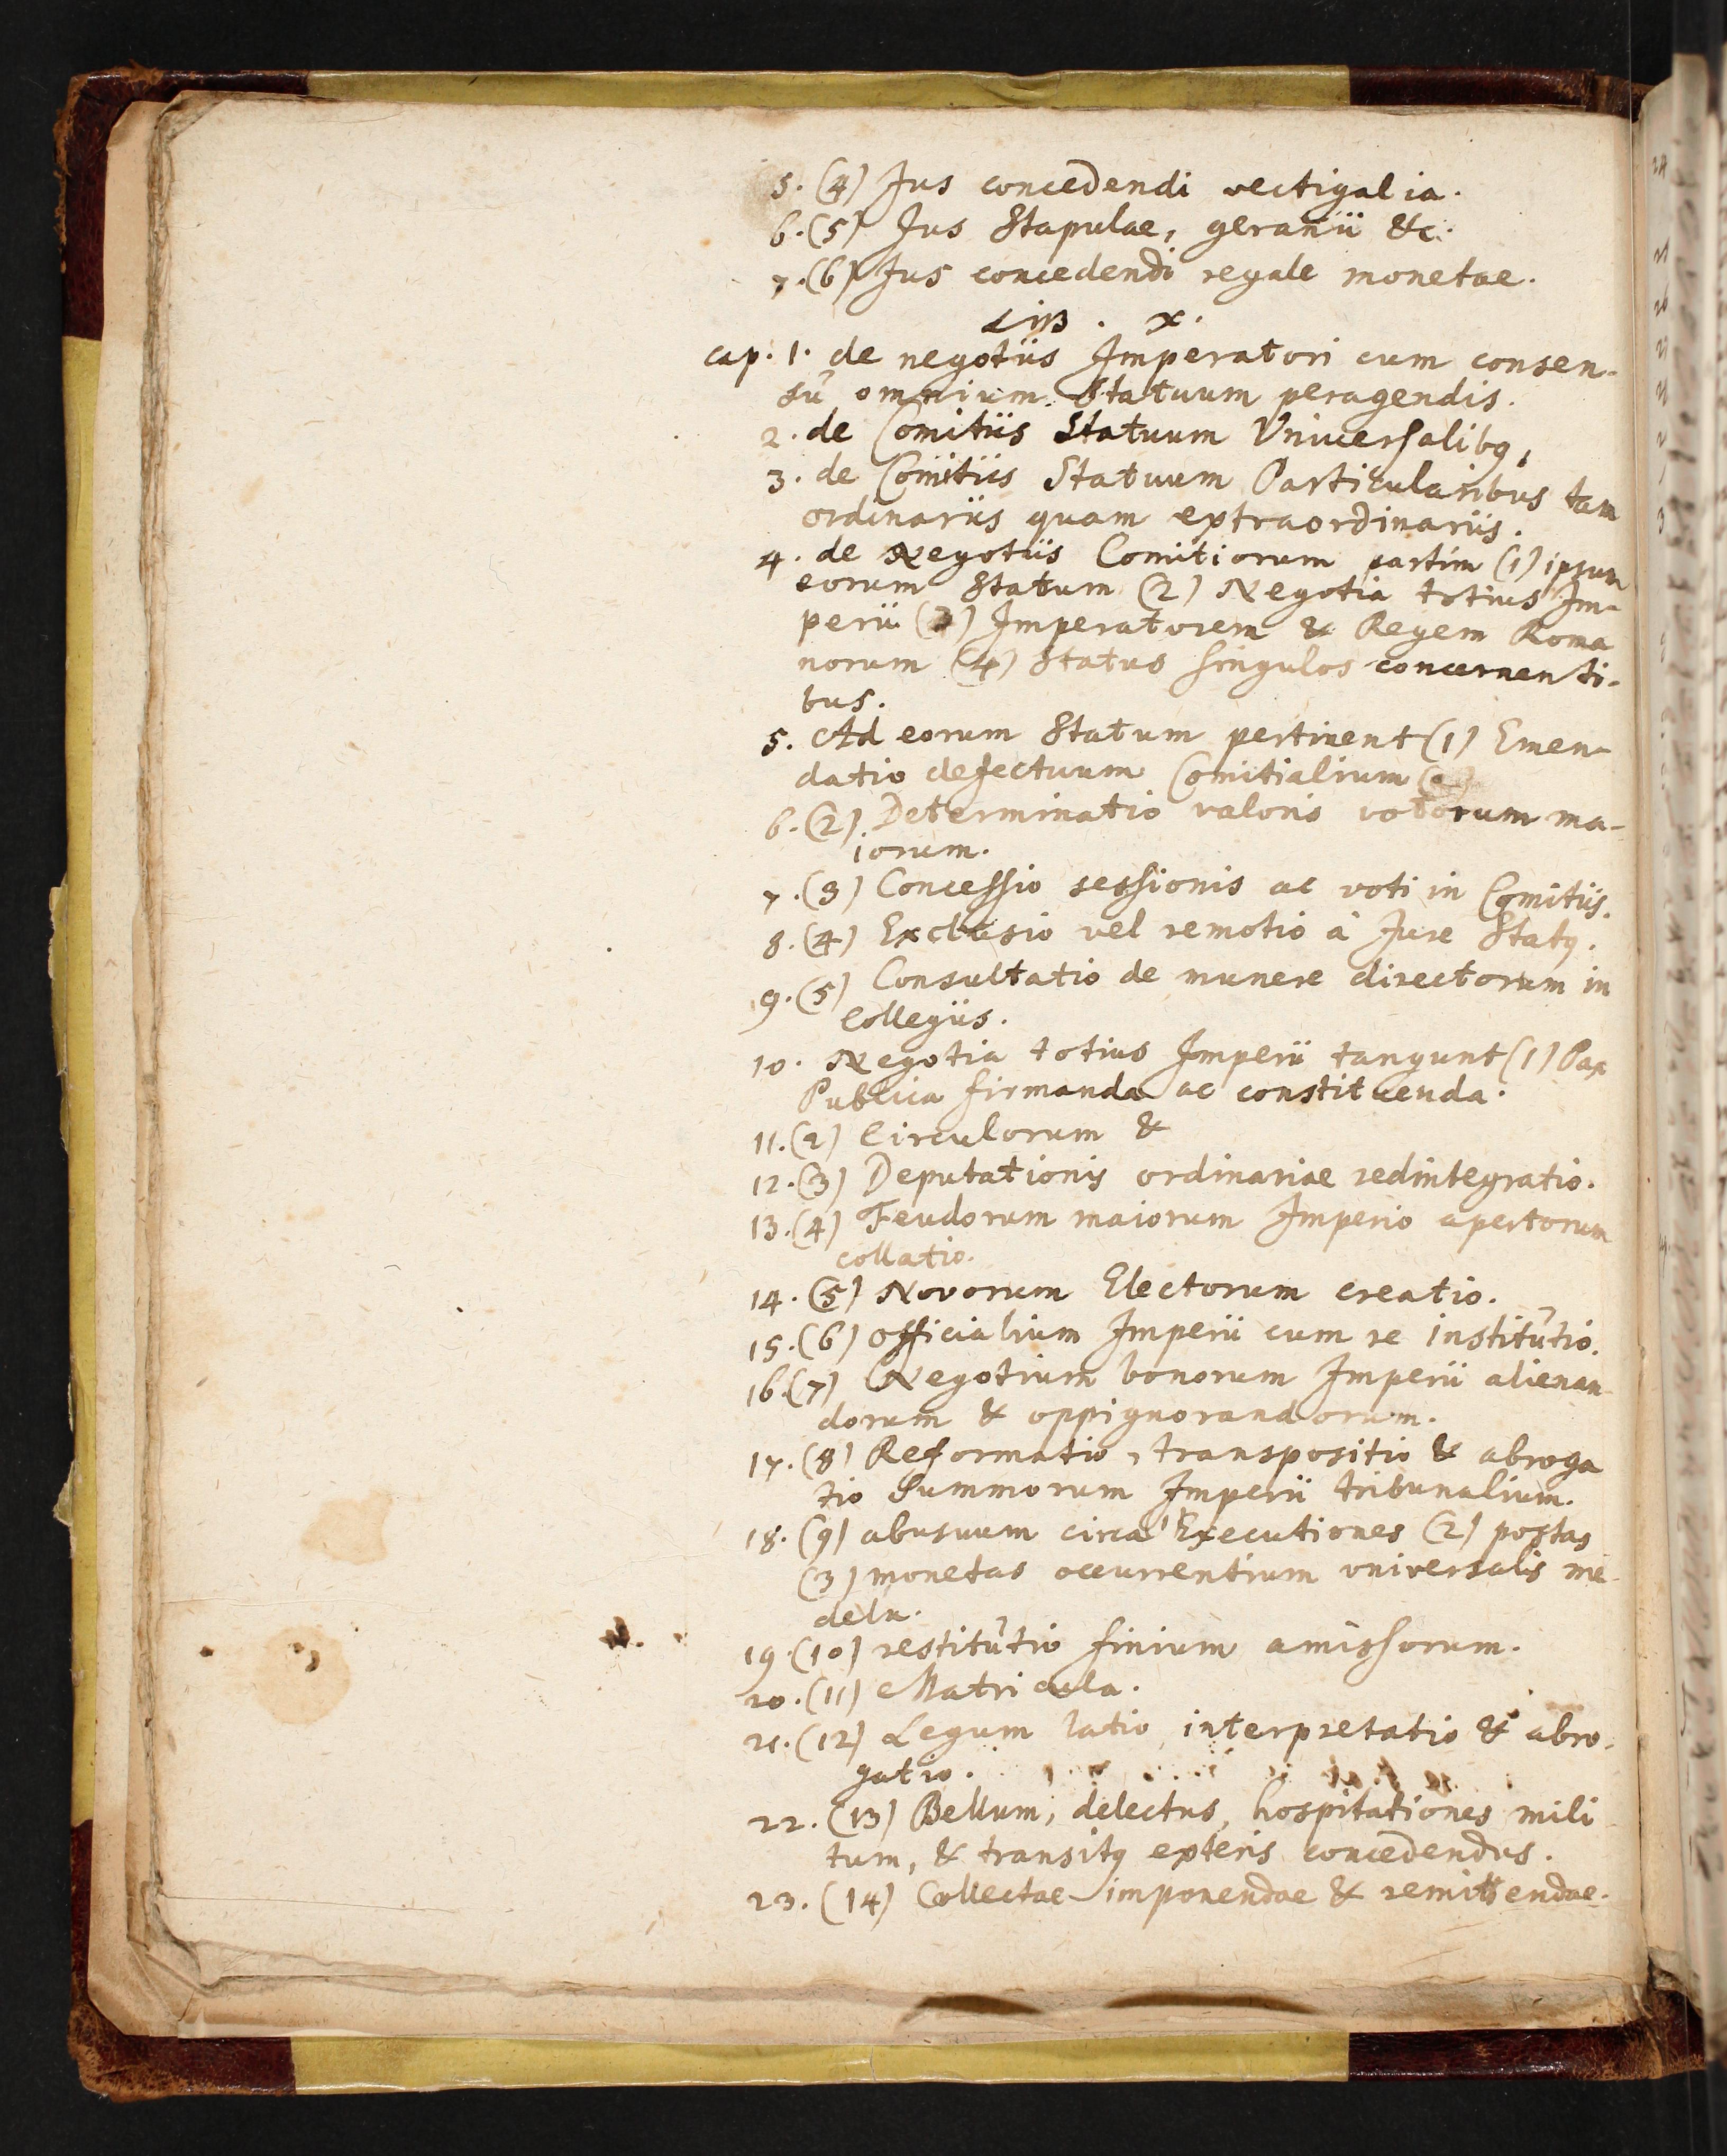 5. (4) Jus concedendi vectigalia.
6. (5) Jus Stapulae, geranii &c.
7. (6) Jus concedendi regale monetae.
LIB. X.
cap. 1. de negotiis Imperatori cum consen-
sû omnium Statuum peragendis.
2. de Comitiis Statuum Universalibq,
3. de Comitiis Statuum Particularibus tam
ordinariis quam extraordinariis.
4. de Negotiis Comitiorum partim (1) ipsum
eorum Statum (2) Negotia totius Im-
perii (3) Imperatorem & Regem Roma
norum (4) Status singulos concernenti-
bus.
5. Ad eorum Statum pertinent (1) Emen-
datio defectuum Comitialium
6. (2) Determinatio valoris votorum ma-
iorum.
7. (3) Concessio sessionis ac voti in Comitiis.
8. (4) Exclusio vel remotio à Jure Statq.
9. (5) Consultatio de munere directorum in
Collegiis.
10. Negotia totius Imperii tangunt (1) Pax
Publica firmanda ac constituenda.
11. (2) Circulorum &
12. (3) Deputationis ordinariae redintegratio.
13. (4) Feudorum maiorum Imperio apertorum
collatio.
14. (5) Novorum Electorum creatio.
15. (6) officialium Imperii cum re institûtio.
16. (7) Negotium bonorum Imperii alienan-
dorum & oppignorandorum.
17. (8) Reformatio, transpositio & abroga
tio Summorum Imperii tribunalium.
18. (9) abusuum circa 1 Executiones (2) postas
(3) monetas occurrentium universalis me-
dela.
19. (10) restitûtio finium amissorum.
20. (11) Matricula.
21. (12) Legum latio, interpretatio & abro-
gatio.
22. (13) Bellum, delectus, hospitationes mili
tum, & transitq exteris concedendus.
23. (14) Collectae imponendae & remittendae.